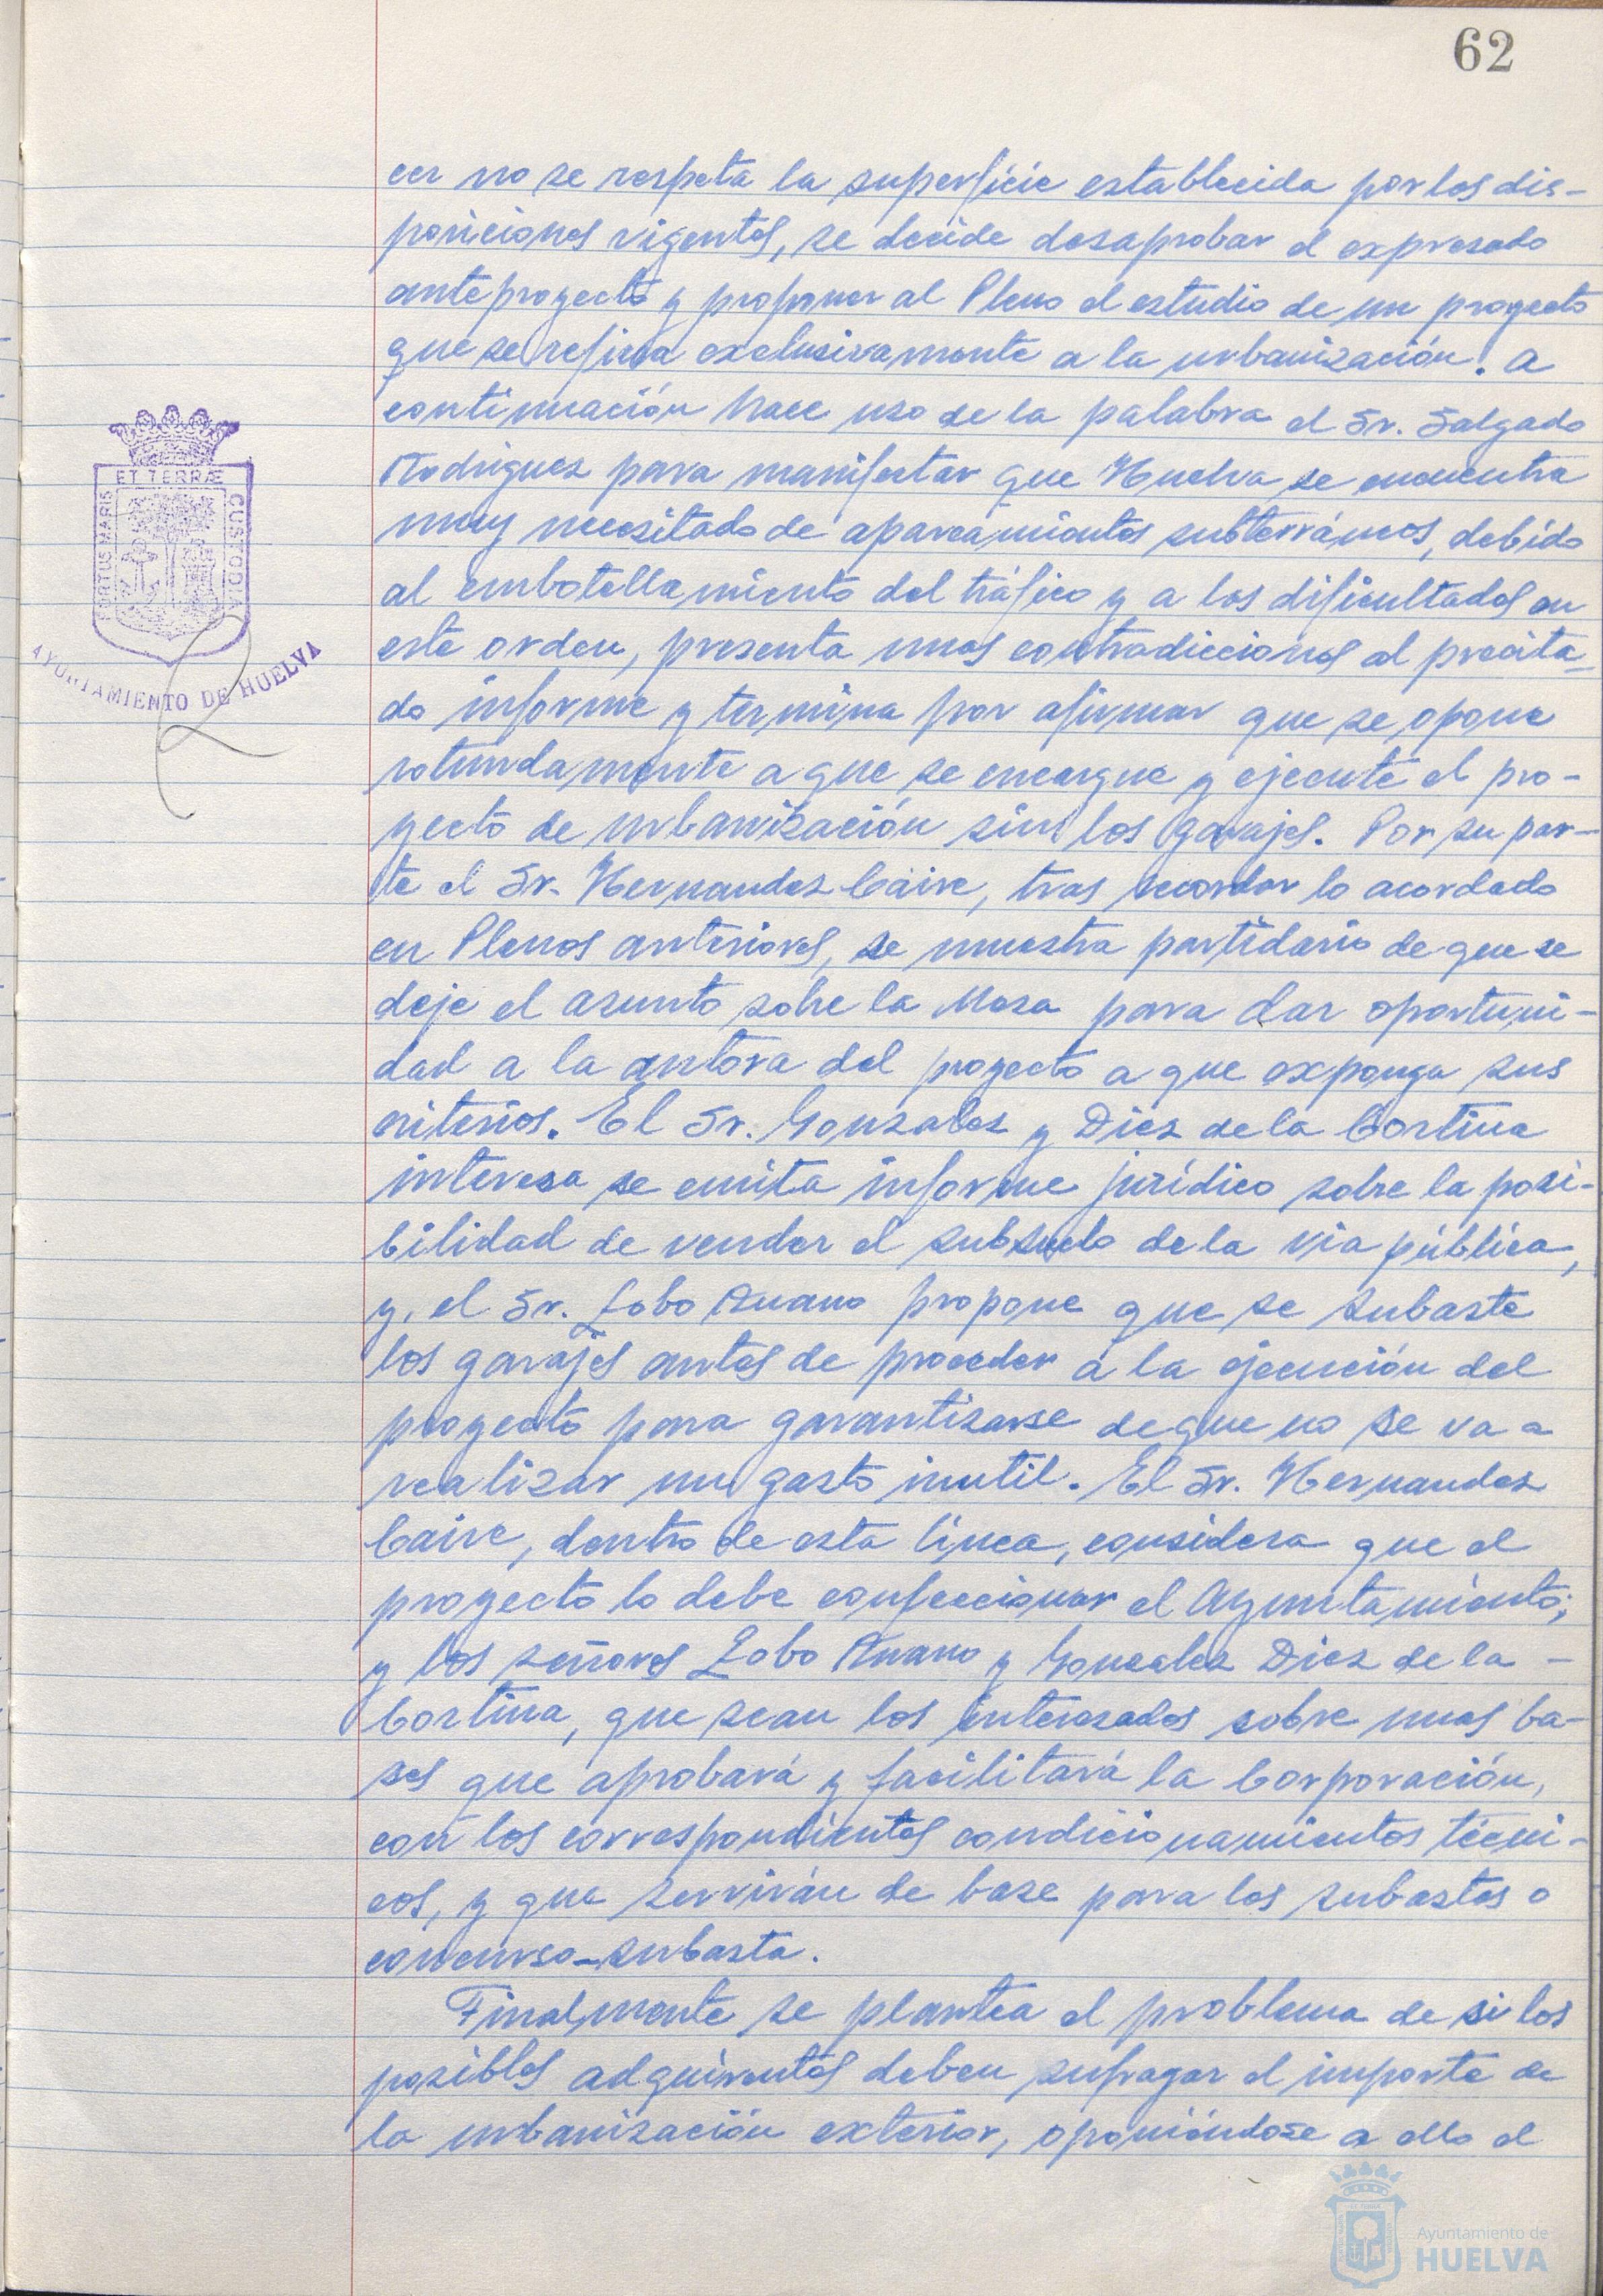 62
cer no se respeta la superficie establecida por las dis-
posiciones vigentes, se decide desaprobar el expresado
anteproyecto y proponer al Pleno el estudio de un proyecto
que se refiera exclusivamente a la urbanización. A
continuación hace uso de la palabra el Sr. Salgado
Rodriguez para manifestar que Huelva se encuentra
muy necesitada de aparcamientos subterráneos, debido
al embotellamiento del tráfico y a las dificultades en
este orden, presenta unas contradicciones al precita-
do informe y termina por afirmar que se opone
rotundamente a que se encargue y ejecute el pro-
yecto de urbanización sin los garajes. Por su par-
te el Sr. Hernandez Caire, tras recordar lo acordado
en Plenos anteriores, se muestra partidario de que se
deje el asunto sobre la Mesa para dar oportuni-
dad a la autora del proyecto a que exponga sus
criterios. El Sr. Gonzalez y Diez de la Cortina
interesa se emita informe jurídico sobre la posi-
bilidad de vender el subsuelo de la via pública,
y, el Sr. Lobo Arano propone que se subaste
los garajes antes de proceder a la ejecución del
proyecto para garantizarse de que no se va a
realizar un gasto inutil. El Sr. Hernandez
Caire, dentro de esta línea, considera que el
proyecto lo debe confeccionar el Ayuntamiento;
y los señores Lobo Arano y Gonzalez Diez de la -
Cortina, que sean los interesados sobre unas ba-
ses que aprobará y facilitará la Corporación,
con los correspondientes condicionamientos técni-
cos, y que servirán de base para las subastas o
concurso-subasta.
Finalmente se plantea el problema de si los
posibles adquirentes deben sufragar el importe de
la urbanización exterior, oponiéndose a ello el
PORTUS MARIS
ET TERRÆ
CUSTODIA
AYUNTAMIENTO DE HUELVA
Ayuntamiento de
HUELVA